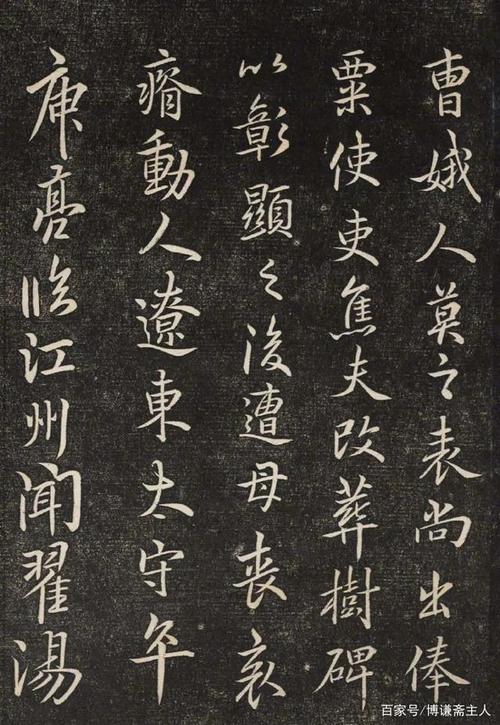 曹娥人莫之表尚出俸
粟使吏焦夫改葬樹碑
以彰顯之後遭母喪哀
瘠動人遼東太守卒
庾亮臨江州聞翟湯
百家号/博谦斋主人